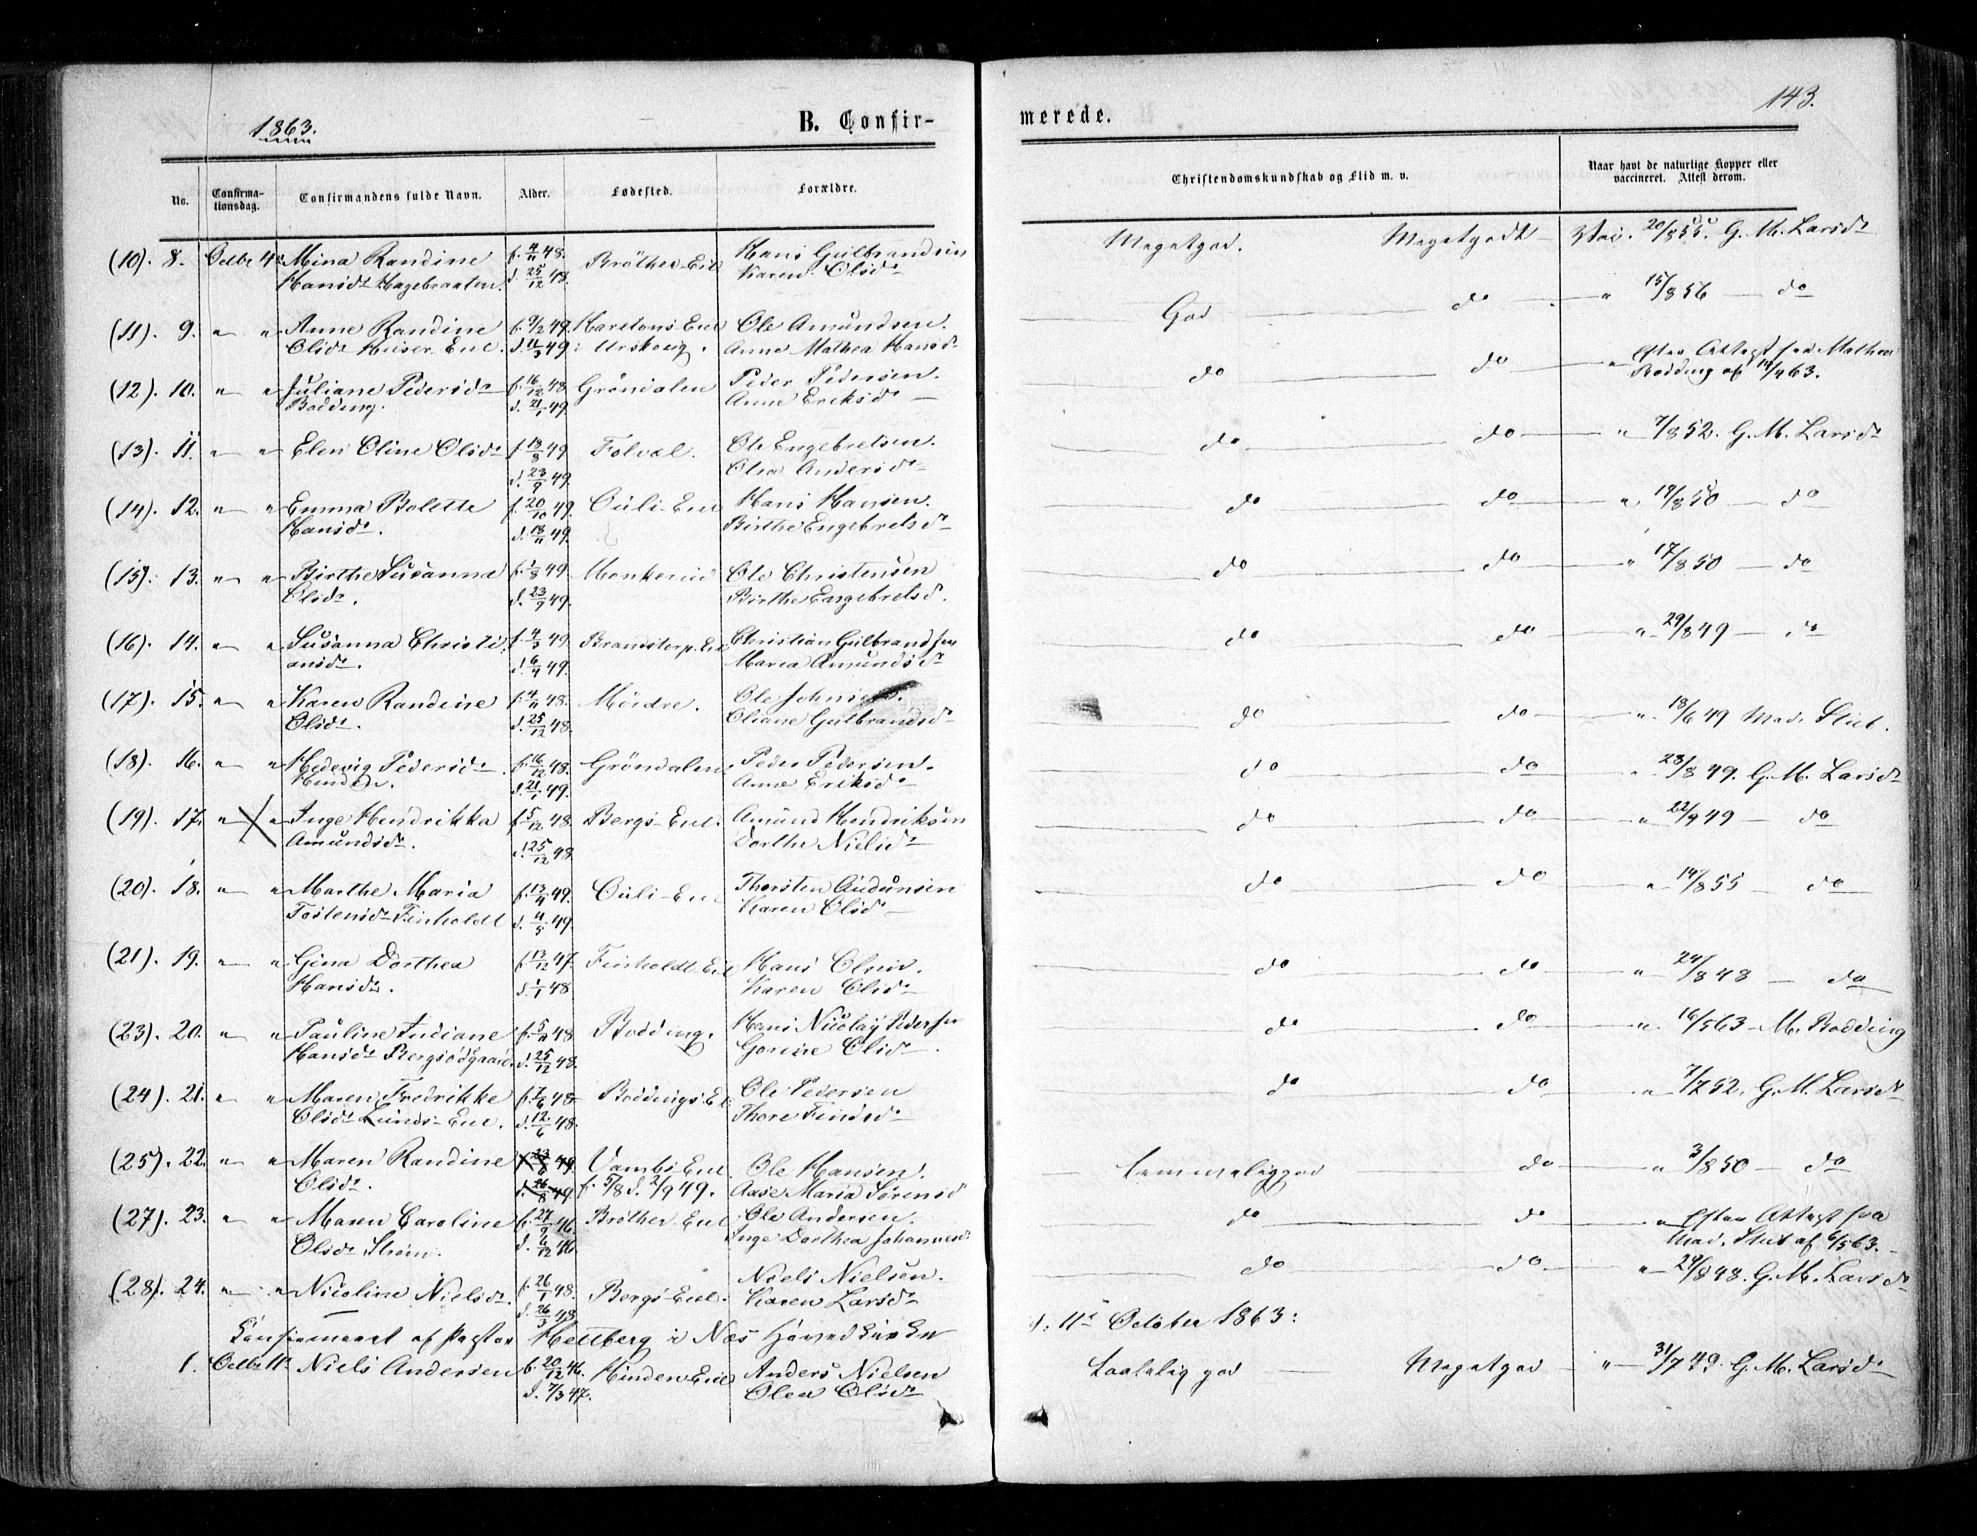 143.
1863.
B. Confir-
merede.
No.
Confirma-
tionsdag.
Confirmandens fulde Navn.
Alder.
Fødested.
Forældre.
Christendomskundskab og Flid m. v.
Naar havt de naturlige Kopper eller
vaccineret. Attest derom.
(10). 8. Octbr 4de Mina Randine f. 4/11 48. Brøther Eie Hans Gulbrandsen Megetgod. Megetgodt 20/8 55. G. M. Larsdr
Hansdr Hagebraaten. d. 25/12 48. Karen Olsdr
(11). 9. " " Anne Randine f. 9/2 49. Eie Ole Amundsen. God do " 15/8 56 do
Olsdr Huser Eie. d. 11/3 49. i Urskoug. Anne Mathea Hansdr
(12). 10. " " Juliane Pedersdr f. 16/12 48. Grøndalen Peder Pedersen. do do " Efter Attest fra Mathea
Bodding. d. 21/1 49. Anne Eriksdr Bodding af 14/9 63.
(13). 11. " " Elen Oline Olsdr f. 13/8 49. Folval. Ole Engebretsen. do do " 7/8 52. G. M. Larsdr
d. 23/9 49. Olea Andersdr
(14). 12. " " Emma Bolette f. 20/10 49. Ouli Eie Hans Hansen. do do " 19/8 50 do
Hansdr. d. 18/11 49. Birthe Engebretsdr
(15). 13. " " Birthe Susanna f. 1/8 49. Munkerud Ole Christensen do do " 17/8 50 do
Olsdr. d. 23/9 49. Birthe Engebretsd.
(16). 14. " " Susanna Christi f. 4/3 49. Brandstorp. Eie Christian Gulbrandsen do do " 29/8 49 do
ansdr. d. 6/4 49. Maria Amundsdr
(17). 15. " " Karen Randine f. 4/11 48. Mørdre. Ole do do " 13/6 49 Mad. Stub.
Olsdr. d. 25/12 48. Oliane Gulbrandsdr
(18). 16. " " Hedevig Pedersdr f. 16/12 48. Grøndalen Peder Pedersen. do do " 23/8 49. G. M. Larsdr
Hinden. d. 21/1 49. Anne Eriksdr
(19). 17. " " Inge Hendrikka f. 5/12 48. Bergs Eie. Amund Hendriksen do do " 22/9 49 do
Amundsdr. d. 25/12 48. Dorthe Nielsdr
(20). 18. " " Marthe Maria f. 13/4 49. Ouli Eie Thorsten Audunsen do do " 14/8 55 do
Tostensdr Finholdt d. 4/5 49. Karen Olsd
(21). 19. " " Gina Dorthea f. 13/12 47. Finholdt Eie Hans Olsen. do do " 24/8 48 do
Hansdr. d. 1/1 48 Karen Olsdr
(23). 20. " " Pauline Indiane f. 5/11 48 Bodding. Hans Nicolay Pedersen do do " 16/5 63 M. Bodding
Hansdr d. 25/12 48. Gorine Olsdr.
(24). 21. " " Maren Fredrikke f. 7/6 48 Boddings Eie Ole Pedersen do do " 7/7 52. G. M. Larsdr
Olsdr Lunds Eie. d. 12/6 48. Thore Findsdr
(25). 22. " " Maren Randine 49. Vambs Eie Ole Hansen. temmelig god do " 3/8 50 do
Olsdr. d. 26/8 49. f. 5/8 d. 2/9 49. Aase Maria Sørensd
(27). 23. " " Maren Caroline f. 27/9 46 Brøther Eie Ole Andersen. do do " Efter Attest fra
Olsdr Strøm. d. 6/12 46 Inge Dorthea Johannesdr Mad. Stub af 6/5 63.
(28). 24. " " Nicoline Nielsdr. f. 26/1 48. Bergs Eie. Niels Nielsen. do do " 29/8 48. G. M. Larsdr
d. 26/3 48 Karen Larsdr
Confirmeret af Pastor Hettberg i Næs Hovedkirke d. 11te October 1863:
1. Octbr 11te Niels Andersen f. 20/12 46. Hinden Eie Anders Nielsen taalelig god Megetgod " 31/7 49. G. M. Larsdr
d. 7/3 47. Olea Olsdr